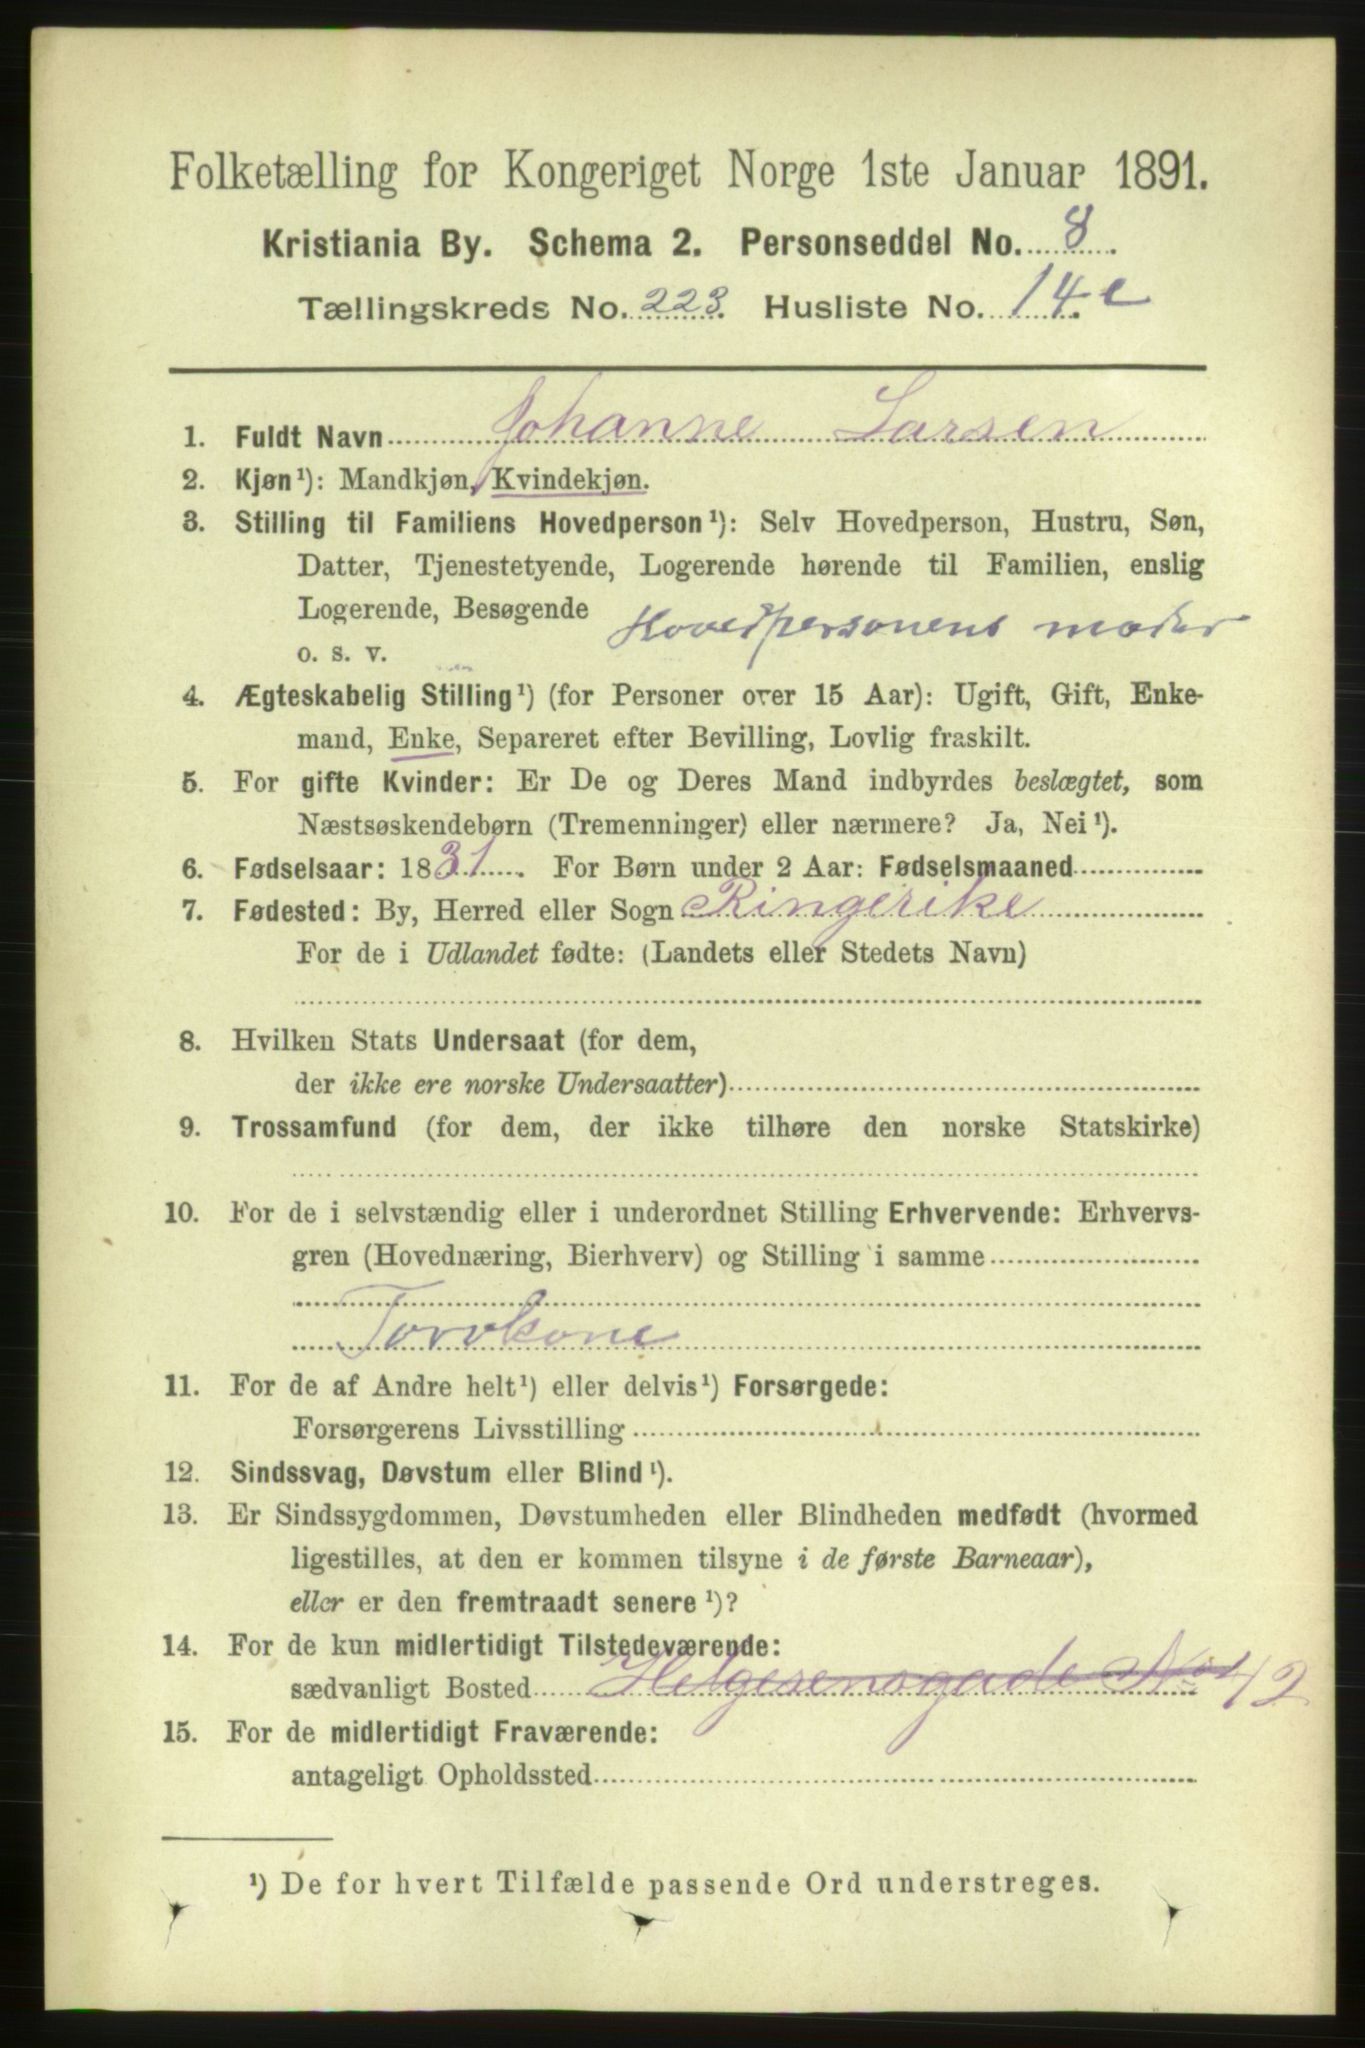 Folketælling for Kongeriget Norge 1ste Januar 1891.
Kristiania By. Schema 2. Personseddel No. 8.
Tællingskreds No. 223. Husliste No. 14.e
1. Fuldt Navn Johanne Larsen
2. Kjøn¹): Mandkjøn, Kvindekjøn.
3. Stilling til Familiens Hovedperson¹): Selv Hovedperson, Hustru, Søn,
Datter, Tjenestetyende, Logerende hørende til Familien, enslig
Logerende, Besøgende Hovedpersonens moder
o. s. v.
4. Ægteskabelig Stilling¹) (for Personer over 15 Aar): Ugift, Gift, Enke-
mand, Enke, Separeret efter Bevilling, Lovlig fraskilt.
5. For gifte Kvinder: Er De og Deres Mand indbyrdes beslægtet, som
Næstsøskendebørn (Tremenninger) eller nærmere? Ja, Nei¹).
6. Fødselsaar: 1831. For Børn under 2 Aar: Fødselsmaaned
7. Fødested: By, Herred eller Sogn Ringerike
For de i Udlandet fødte: (Landets eller Stedets Navn)
8. Hvilken Stats Undersaat (for dem,
der ikke ere norske Undersaatter)
9. Trossamfund (for dem, der ikke tilhøre den norske Statskirke)
10. For de i selvstændig eller i underordnet Stilling Erhvervende: Erhvervs-
gren (Hovednæring, Bierhverv) og Stilling i samme
Torvkone
11. For de af Andre helt¹) eller delvis¹) Forsørgede:
Forsørgerens Livsstilling
12. Sindssvag, Døvstum eller Blind¹).
13. Er Sindssygdommen, Døvstumheden eller Blindheden medfødt (hvormed
ligestilles, at den er kommen tilsyne i de første Barneaar),
eller er den fremtraadt senere¹)?
14. For de kun midlertidigt Tilstedeværende:
sædvanligt Bosted Helgesensgade No 42
15. For de midlertidigt Fraværende:
antageligt Opholdssted
¹) De for hvert Tilfælde passende Ord understreges.